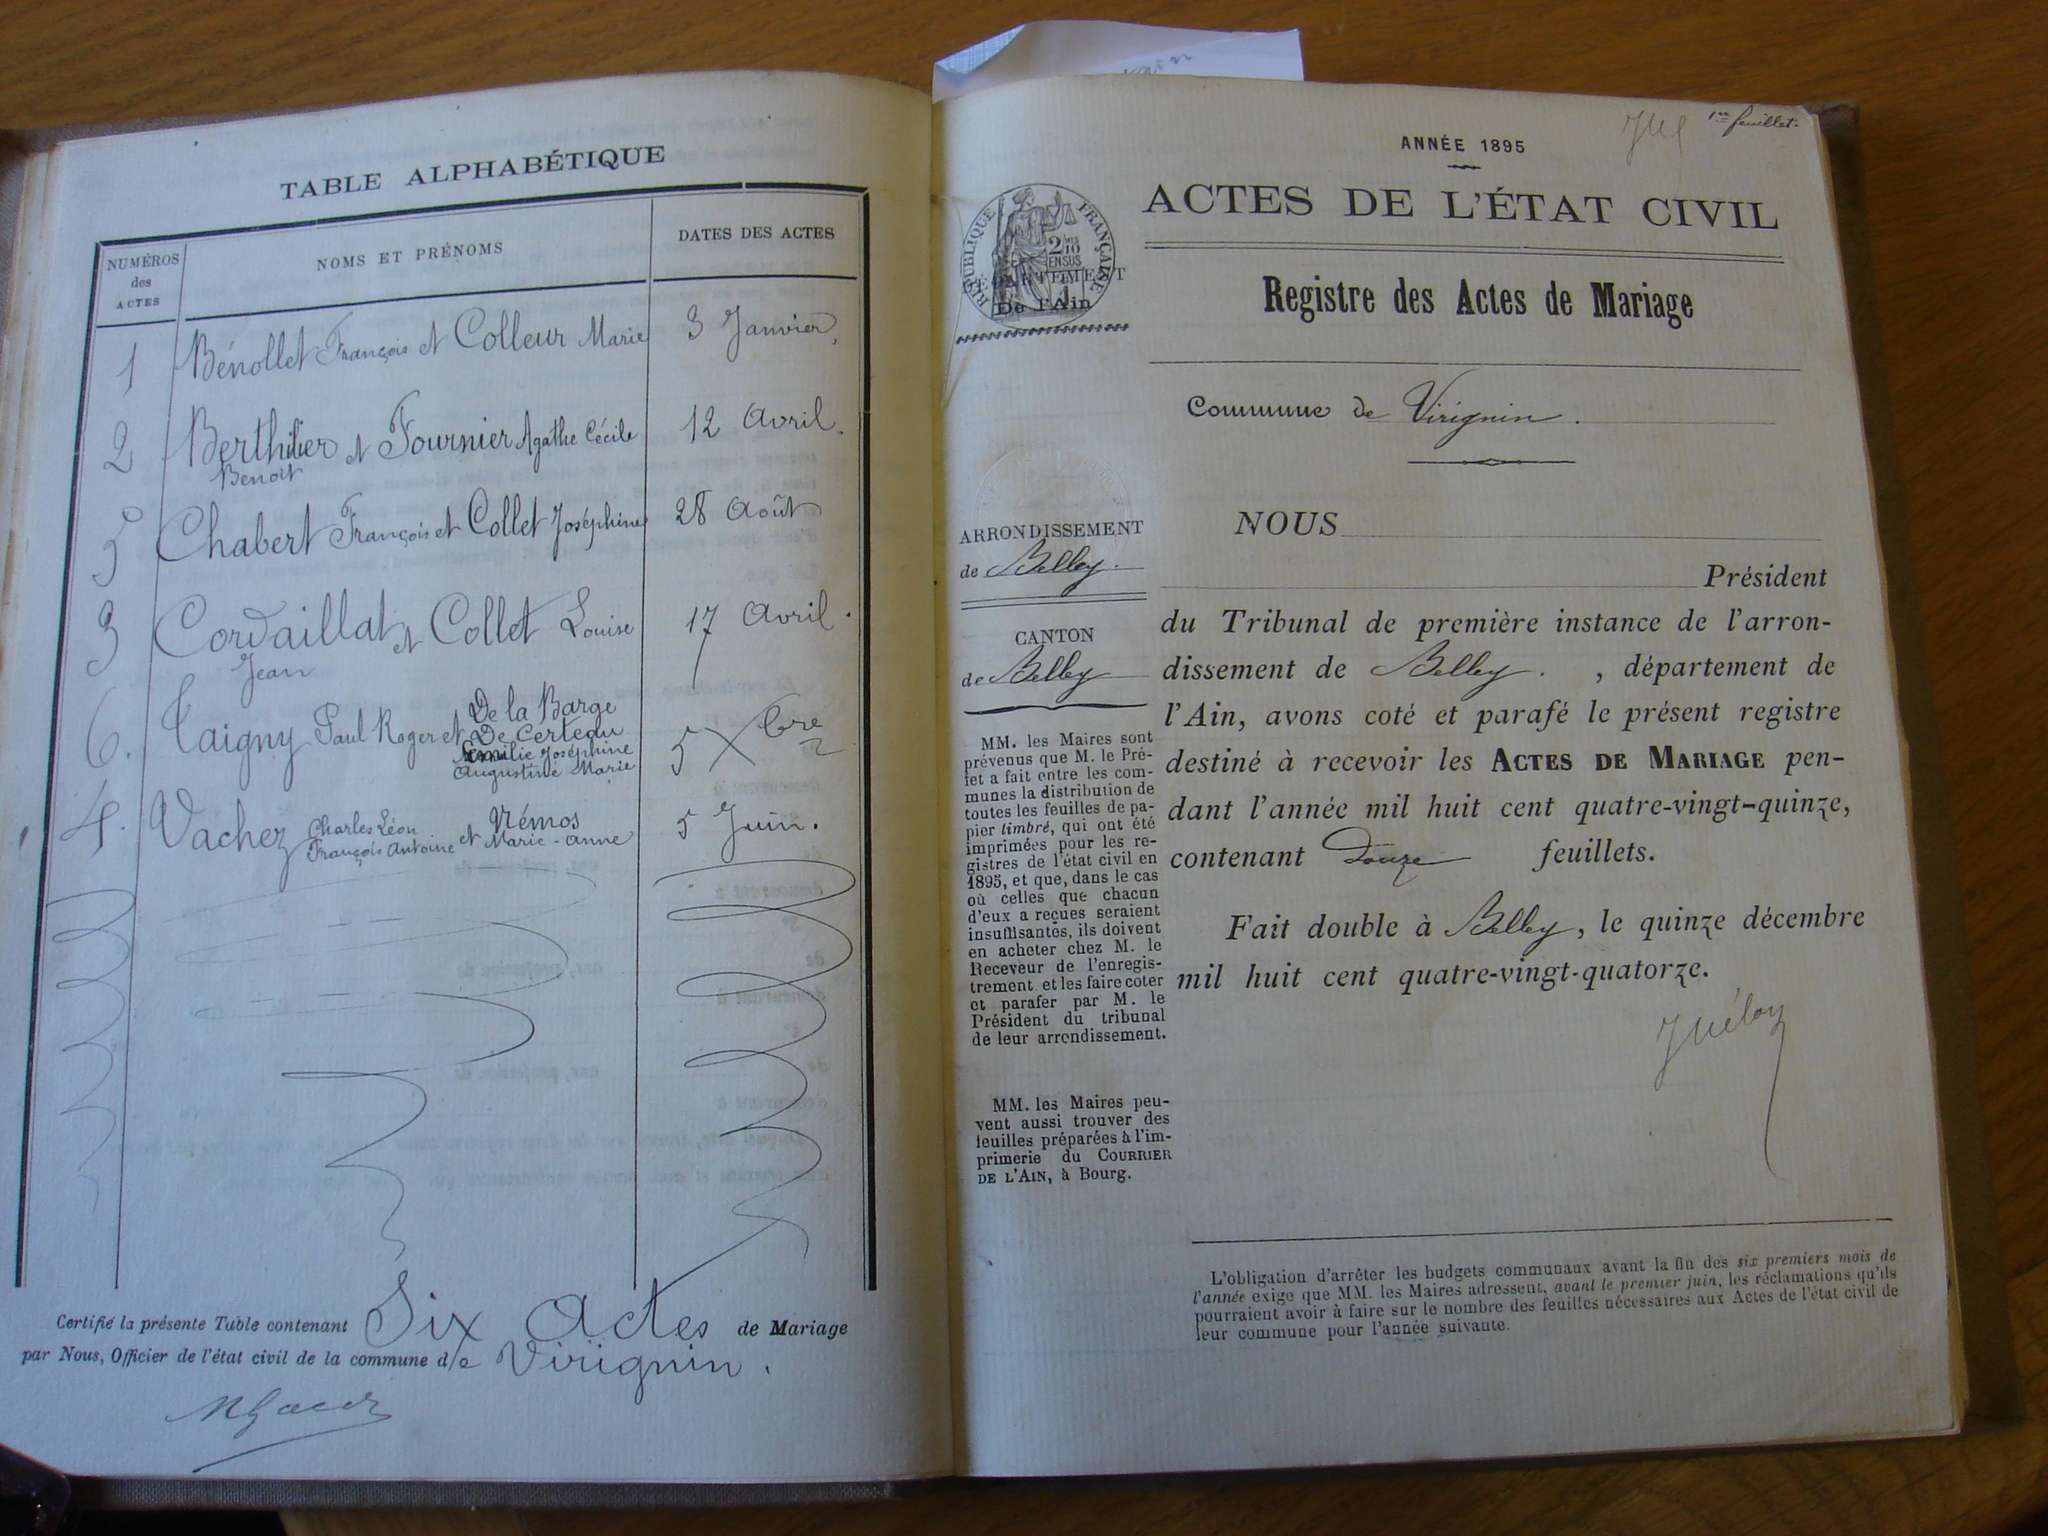 TABLE ALPHABÉTIQUE
NUMÉROS
des
ACTES
NOMS ET PRÉNOMS
DATES DES ACTES
1 Bénollet François et Colleur Marie 3 Janvier,
2 Berthilier et Fournier Agathe Cécile 12 Avril.
Benoit
5 Chabert François et Collet Joséphine 28 Août
3 Cordaillat et Collet Louise 17 Avril.
Jean
De la Barge
6. Taigny Paul Roger et De Certeau 5 Xbre
Emilie Joséphine
Augustine Marie
4. Vachez Charles Léon et Némos 5 Juin.
François Antoine Marie-Anne
Certifié la présente Table contenant Six Actes de Mariage
par Nous, Officier de l'état civil de la commune de Virignin.
1er feuillet.
ANNÉE 1895
ACTES DE L'ÉTAT CIVIL
RÉPUBLIQUE FRANÇAISE
2/10
EN SUS
DÉPARTEMENT
De l'Ain
Registre des Actes de Mariage
Commune de Virignin.
ARRONDISSEMENT
de Belley.
CANTON
de Belley
MM. les Maires sont
prévenus que M. le Pré-
fet a fait entre les com-
munes la distribution de
toutes les feuilles de pa-
pier timbré, qui ont été
imprimées pour les re-
gistres de l'état civil en
1895, et que, dans le cas
où celles que chacun
d'eux a reçues seraient
insuffisantes, ils doivent
en acheter chez M. le
Receveur de l'enregis-
trement et les faire coter
et parafer par M. le
Président du tribunal
de leur arrondissement.
MM. les Maires peu-
vent aussi trouver des
feuilles préparées à l'im-
primerie du COURRIER
DE L'AIN, à Bourg.
NOUS
Président
du Tribunal de première instance de l'arron-
dissement de Belley. , département de
l'Ain, avons coté et parafé le présent registre
destiné à recevoir les ACTES DE MARIAGE pen-
dant l'année mil huit cent quatre-vingt-quinze,
contenant Douze feuillets.
Fait double à Belley, le quinze décembre
mil huit cent quatre-vingt-quatorze.
L'obligation d'arrêter les budgets communaux avant la fin des six premiers mois de
l'année exige que MM. les Maires adressent, avant le premier juin, les réclamations qu'ils
pourraient avoir à faire sur le nombre des feuilles nécessaires aux Actes de l'état civil de
leur commune pour l'année suivante.